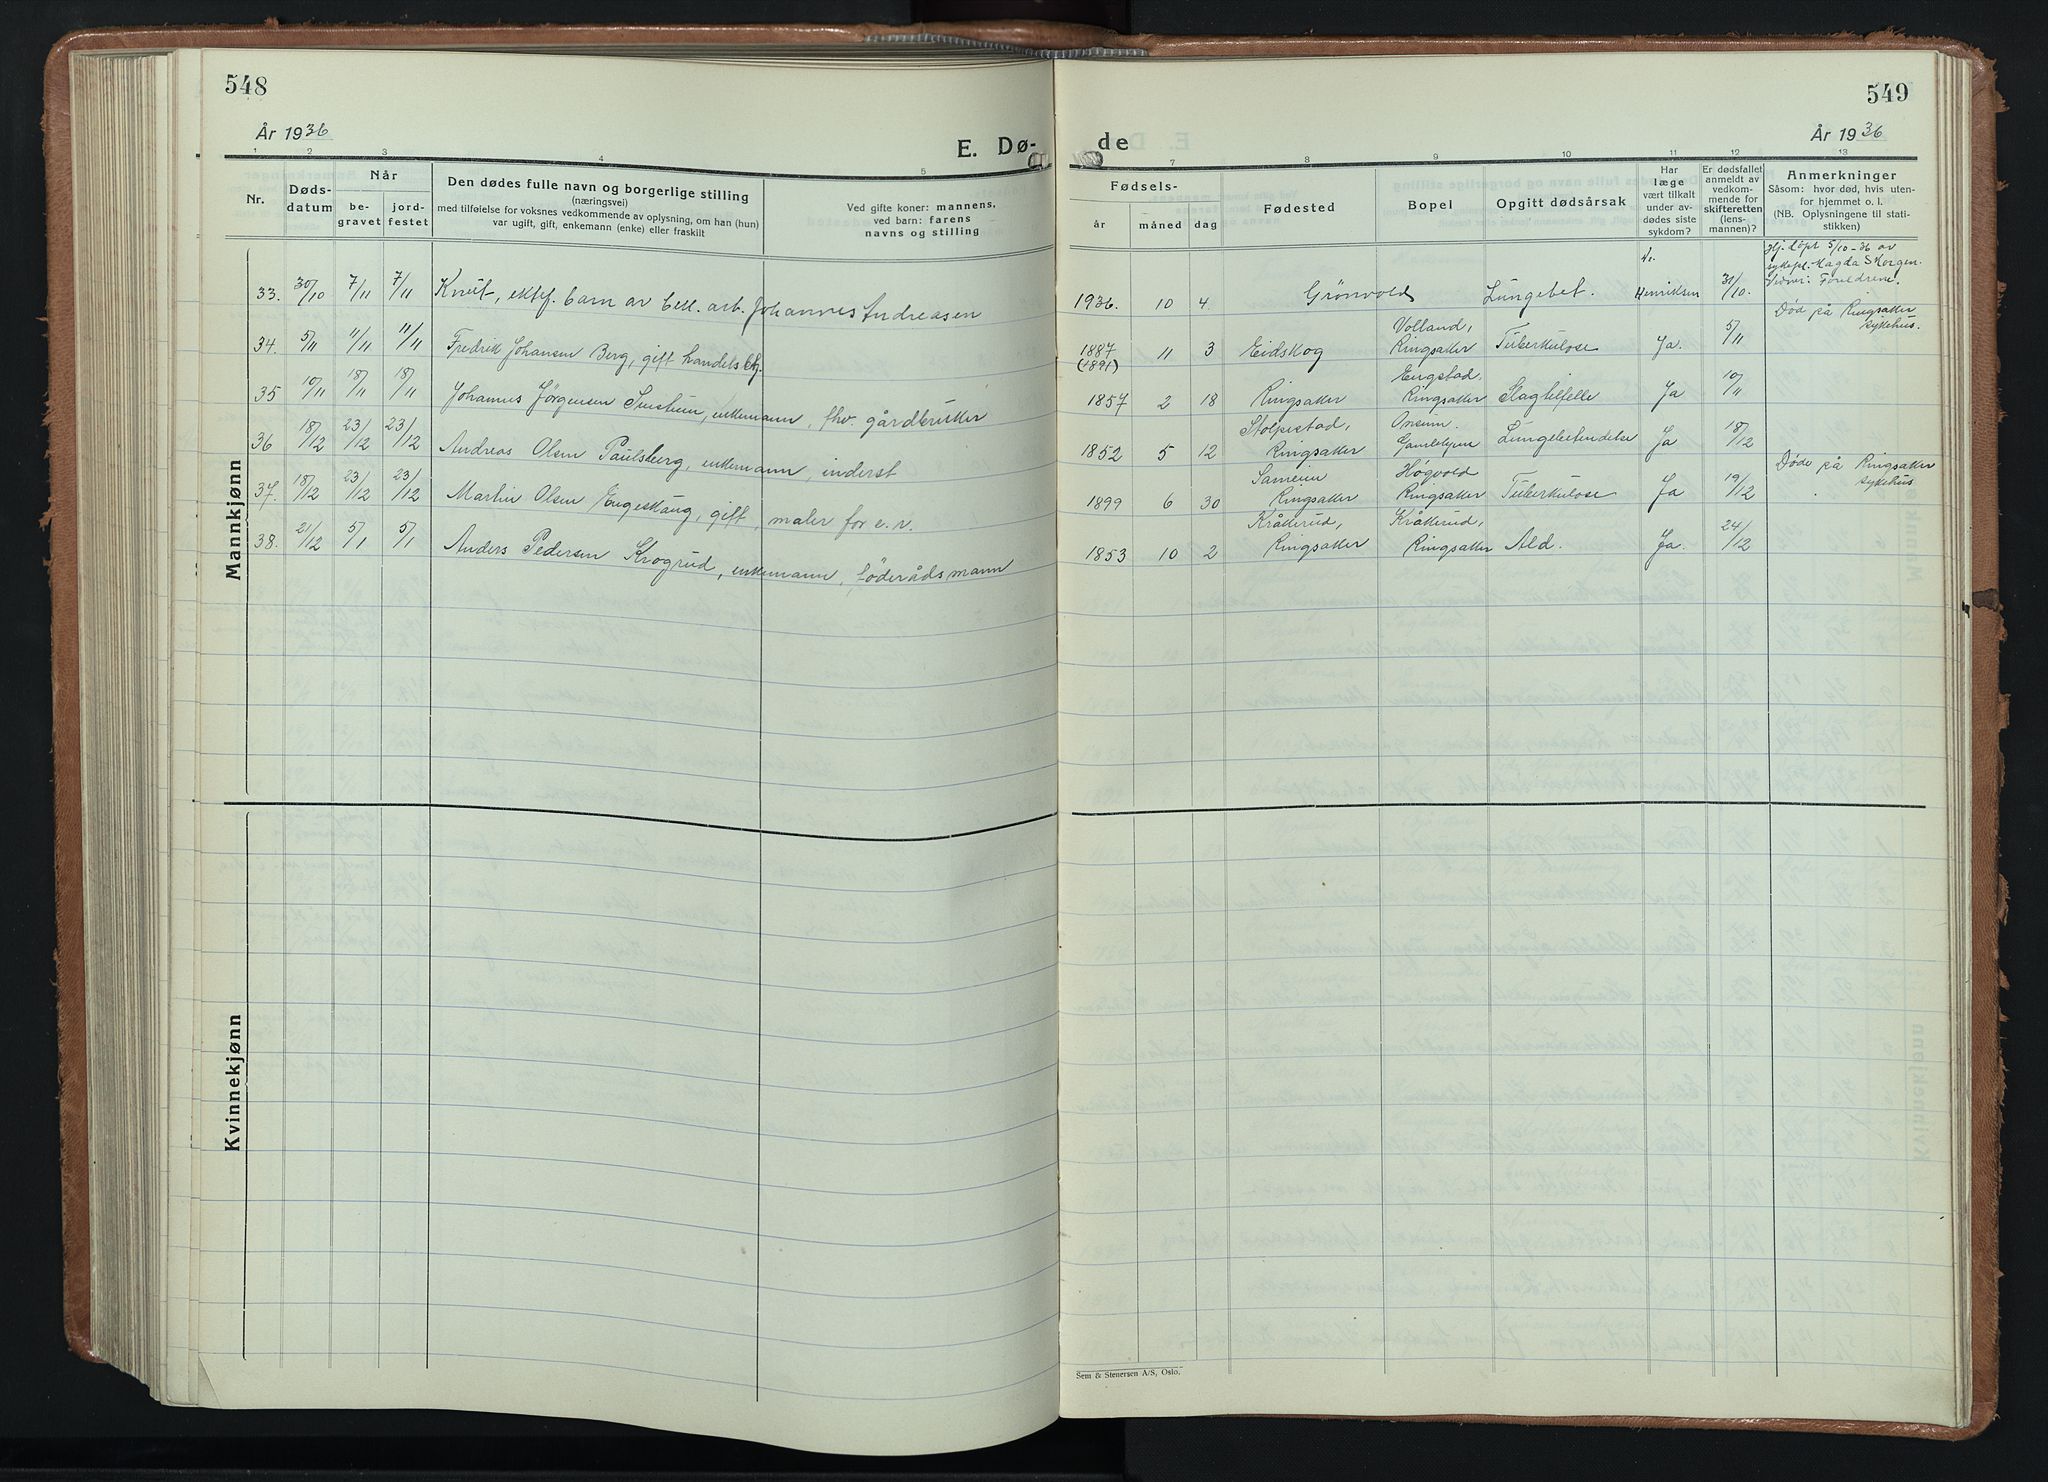 548
År 1936
E. Dø-
1 2 3 4 5
Nr.
Døds-
datum
Når
be-
gravet
jord-
festet
Den dødes fulle navn og borgerlige stilling
(næringsvei)
med tilføielse for voksnes vedkommende av oplysning, om han (hun)
var ugift, gift, enkemann (enke) eller fraskilt
Ved gifte koner: mannens,
ved barn: farens
navns og stilling
Mannkjønn
33. 30/10 7/11 7/11 Knut, ektef. barn av Johannes Andreasen
34. 5/11 11/11 11/11 Fredrik Johansen Berg, gift handelsbtj.
35 10/11 18/11 18/11 Johannes Jørgensen enkemann, fhv. gårdbruker
36 18/12 23/12 23/12 Andreas Olsen Paulsberg, enkemann, inderst
37. 18/12 23/12 23/12 Martin Olsen Engeskaug, gift, maler for e. r.
38. 21/12 5/1 5/1 Anders Pedersen Krogrud, enkemann, föderådsmann
Kvinnekjønn
549
de
År 1936
7 8 9 10 11 12 13
Fødsels-
år måned dag
Fødested
Bopel
Opgitt dødsårsak
Har
læge
vært tilkalt
under av-
dødes siste
sykdom?
Er dødsfallet
anmeldt av
vedkom-
mende for
skifteretten
(lens-
mannen)?
Anmerkninger
Såsom: hvor død, hvis uten-
for hjemmet o. l.
(NB. Oplysningene til stati-
stikken)
Hj. döpt 5/10-36 av
sykepl. Magda Skorgen.
Foreldrene.
1936. 10 4 Grönvold Lungebet. Henriksen 31/10.
Død på Ringsaker
sykehus.
Volland,
1887 11 3 Eidskog Ringsaker Tuberkulose Ja. 5/11
(1891)
Engstad,
1857 2 18 Ringsaker Ringsaker Slagtilfelle Ja 10/11
Stolpestad,
1852 5 12 Ringsaker Gamlehjem Lungebetendelse Ja 18/12
Døde på Ringsaker
sykehus
Høgvold
1899 6 30 Ringsaker Ringsaker Tuberkulose Ja 19/12
Kråkerud, Kråkerud,
1853 10 2 Ringsaker Ringsaker Ald. Ja. 24/12
Sem & Stenersen A/S, Oslo.